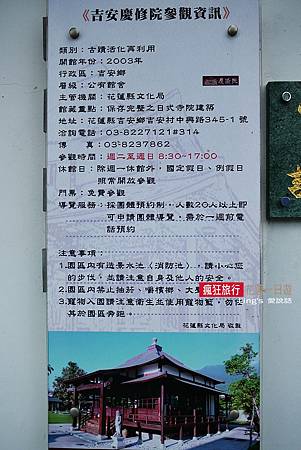 《吉安慶修院參觀資訊》
類別：古蹟活化再利用
開館年份：2003年
行政區：吉安鄉
層級：公有館舍
主管機關：花蓮縣文化局
館藏重點：保存完整之日式寺院建築
地址：花蓮縣吉安鄉吉安村中興路345-1 號
洽詢電話：03-8227121#314
傳 真：03-8237862
參觀時間：週二至週日 8:30~17:00
休館日：除週一休館外，國定假日、例假日
照常開放參觀
門票：免費參觀
導覽服務：採團體預約制，人數20人以上即
可申請團體導覽，需於一週前電
話預約
注意事項
1.園區內有造景水池（消防池），請小心您
的步伐，並請注意自身及他人的安全。
2.園區內禁止抽菸、嚼檳榔、大
3.寵物入園請注意衛生並使用寵物籃，勿使
其於園區奔跑。
花蓮縣文化局 敬製
瘋狂旅行
花蓮一日遊
愛說話